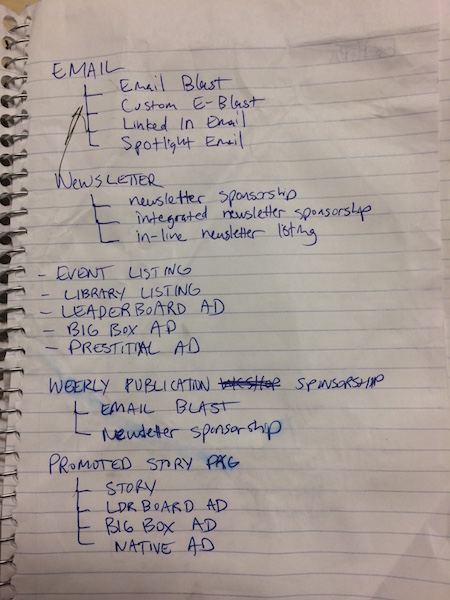 EMAIL
Email Blast
Custom E-Blast
Linked In Email
Spotlight Email
NEWSLETTER
newsletter sponsorship
integrated newsletter sponsorship
in-line newsletter listing
- EVENT LISTING
- LIBRARY LISTING
- LEADERBOARD AD
- BIG BOX AD
- PRESTITIAL AD
WEEKLY PUBLICATION SPONSORSHIP
EMAIL BLAST
Newsletter sponsorship
PROMOTED STORY PKG
STORY
LDRBOARD AD
BIG BOX AD
NATIVE AD